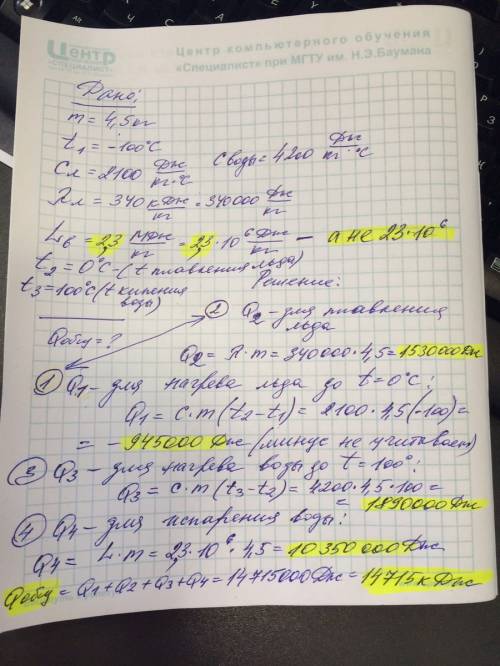 Центр
«СПЕЦИАЛИСТ»
Центр компьютерного обучения
«Специалист» при МГТУ им. Н.Э.Баумана
Дано:
m = 4,5 кг
t₁ = -100°C
Cл = 2100 Дж/кг·°C   C воды = 4200 Дж/кг·°C
λл = 340 кДж/кг = 340000 Дж/кг
Lв = 2,3 МДж/кг = 2,3·10⁶ Дж/кг — а не 23·10⁶
t₂ = 0°C - (t плавления льда)
t₃ = 100°C (t кипения воды)
Решение:
Qобщ = ?
② Q₂ - для плавления льда
Q₂ = λ·m = 340000·4,5 = 1530000 Дж
① Q₁ - для нагрева льда до t = 0°C:
Q₁ = c·m(t₂-t₁) = 2100·4,5(-100) =
= - 945000 Дж (минус не учитываем)
③ Q₃ - для нагрева воды до t = 100°:
Q₃ = c·m(t₃-t₂) = 4200·4,5·100 =
= 1890000 Дж
④ Q₄ - для испарения воды:
Q₄ = L·m = 2,3·10⁶·4,5 = 10350000 Дж
Qобщ = Q₁+Q₂+Q₃+Q₄ = 14715000 Дж = 14715 кДж